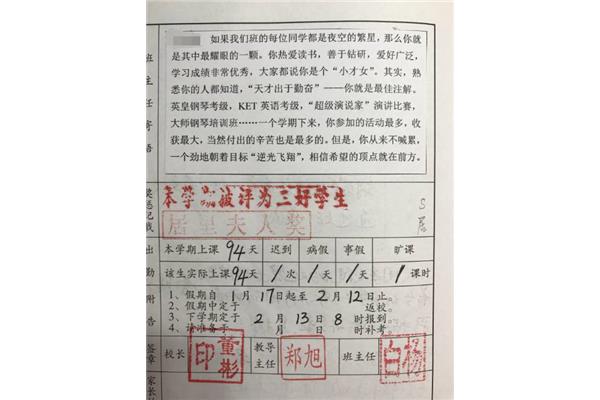 如果我们班的每位同学都是夜空的繁星,那么你就
是其中最耀眼的一颗。你热爱读书,善于钻研,爱好广泛,
学习成绩非常优秀,大家都说你是个“小才女”。其实,熟
悉你的人都知道,“天才出于勤奋”——你就是最佳注解。
英皇钢琴考级,KET英语考级,“超级演说家”演讲比赛,
大师钢琴培训班……一个学期下来,你参加的活动最多,收
获最大,当然付出的辛苦也是最多的。但是,你从来不喊累,
一个劲地朝着目标“逆光飞翔”,相信希望的顶点就在前方。
班主任寄语
本学期被评为三好学生
居里夫人奖
奖惩记载
出勤
本学期上课 94 天 迟到 病假 事假 旷课
该生实际上课 94 天 / 次 / 天 / 天 / 课时
附告
1、假期自 1 月 17 日起至 2 月 12 日止。
2、假期中定于 返校。
3、下学期定于 2 月 13 日 8 时报到。
4、请准备于 月 日 时补考。
签章
校长 董彬印 教导主任 郑旭 班主任 杨白
家长